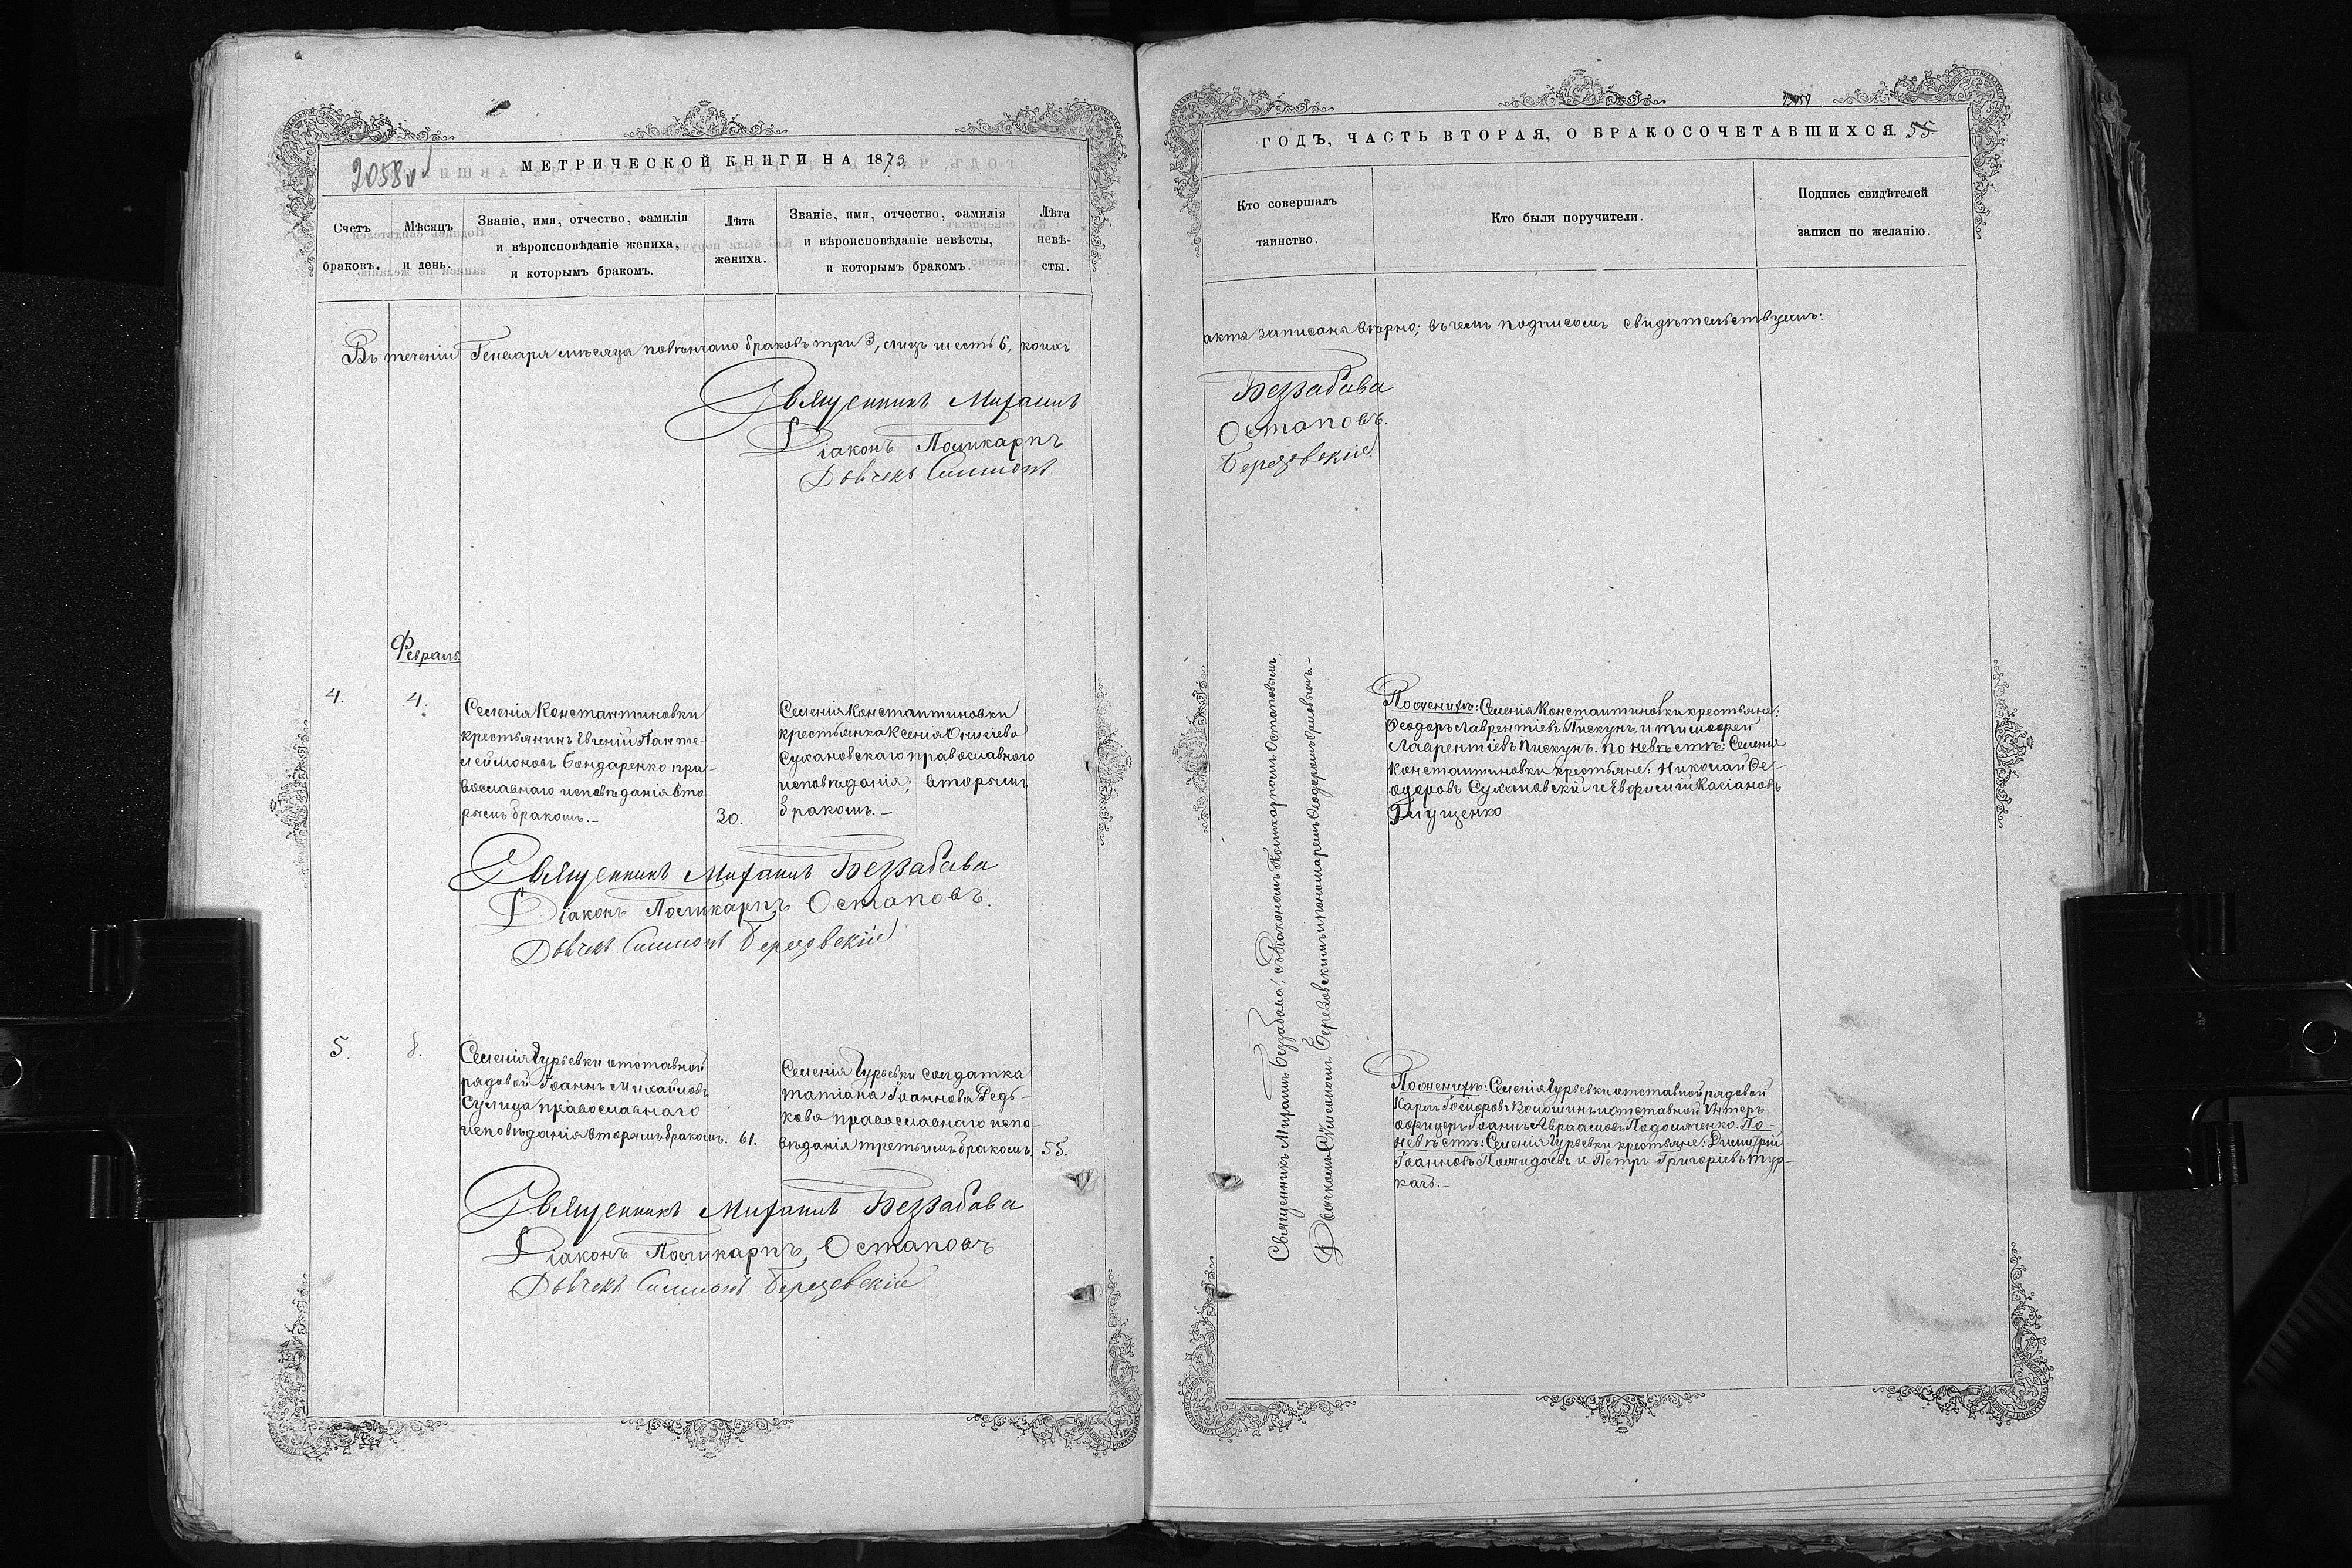 2058
МЕТРИЧЕСКОЙ КНИГИ НА 1873
Счетъ браковъ.
Мѣсяцъ и день.
Званіе, имя, отчество, фамилія
и вѣроисповѣданіе жениха,
и которымъ бракомъ.
Лѣта
жениха.
Званіе, имя, отчество, фамилія
и вѣроисповѣданіе невѣсты,
и которымъ бракомъ.
Лѣта
невѣ-
сты.
Въ теченіи Генваря мѣсяца повѣнчано браковъ три 3, лицъ шесть 6, коихъ
Священникъ Михаилъ
Діаконъ Поликарпъ
Дьячекъ Симеонъ
Февраль
4.
4.
Селенія Константиновки
крестьянинъ Евгеній Панте-
леймоновъ Бондаренко пра-
вославнаго исповѣданія вто-
рымъ бракомъ.-
30.
Селенія Константиновки
крестьянка Ксенія Оникіева
Сухановскаго православнаго
исповѣданія; вторымъ
бракомъ.-
Священникъ Михаилъ Беззабава
Діаконъ Поликарпъ Остаповъ.
Дьячекъ Симеонъ Березовскій
5.
8.
Селенія Гурьевки отставной
рядовой Іоаннъ Михайловъ
Сулица православнаго
исповѣданія вторымъ бракомъ.
61.
Селенія Гурьевки солдатка
Татіана Іоаннова Редь-
кова православнаго испо-
вѣданія третьимъ бракомъ.
55.
Священникъ Михаилъ Беззабава
Діаконъ Поликарпъ Остаповъ
Дьячекъ Симеонъ Березовскій
ГОДЪ, ЧАСТЬ ВТОРАЯ, О БРАКОСОЧЕТАВШИХСЯ. 55
Кто совершалъ
таинство.
Кто были поручители.
Подпись свидѣтелей
записи по желанію.
акта записана вѣрно; въ чемъ подписомъ свидѣтельствуемъ:
Беззабава
Остаповъ.
Березовскій
Священникъ Михаилъ Беззабава, съ Діакономъ Поликарпомъ Остаповымъ,
Дьячкомъ Симеономъ Березовскимъ и пономаремъ Ѳеодоромъ Орловымъ.-
По женихѣ: Селенія Константиновки крестьяне:
Ѳеодоръ Лаврентіевъ Пискунъ и Тимоѳей
Лаврентіевъ Пискунъ. По невѣстѣ: Селенія
Константиновки крестьяне: Николай Ѳе-
одоровъ Сухановскій и Евѳимій Касіановъ
Глущенко
По женихѣ: Селенія Гурьевки отставной рядовой
Карпъ Волошинъ и отставной Унтеръ
офицеръ Іоаннъ Авраамовъ Подоляченко. По
невѣстѣ: Селенія Гурьевки крестьяне: Димитрій
Іоанновъ и Петръ Григоріевъ Тур-
качъ.-